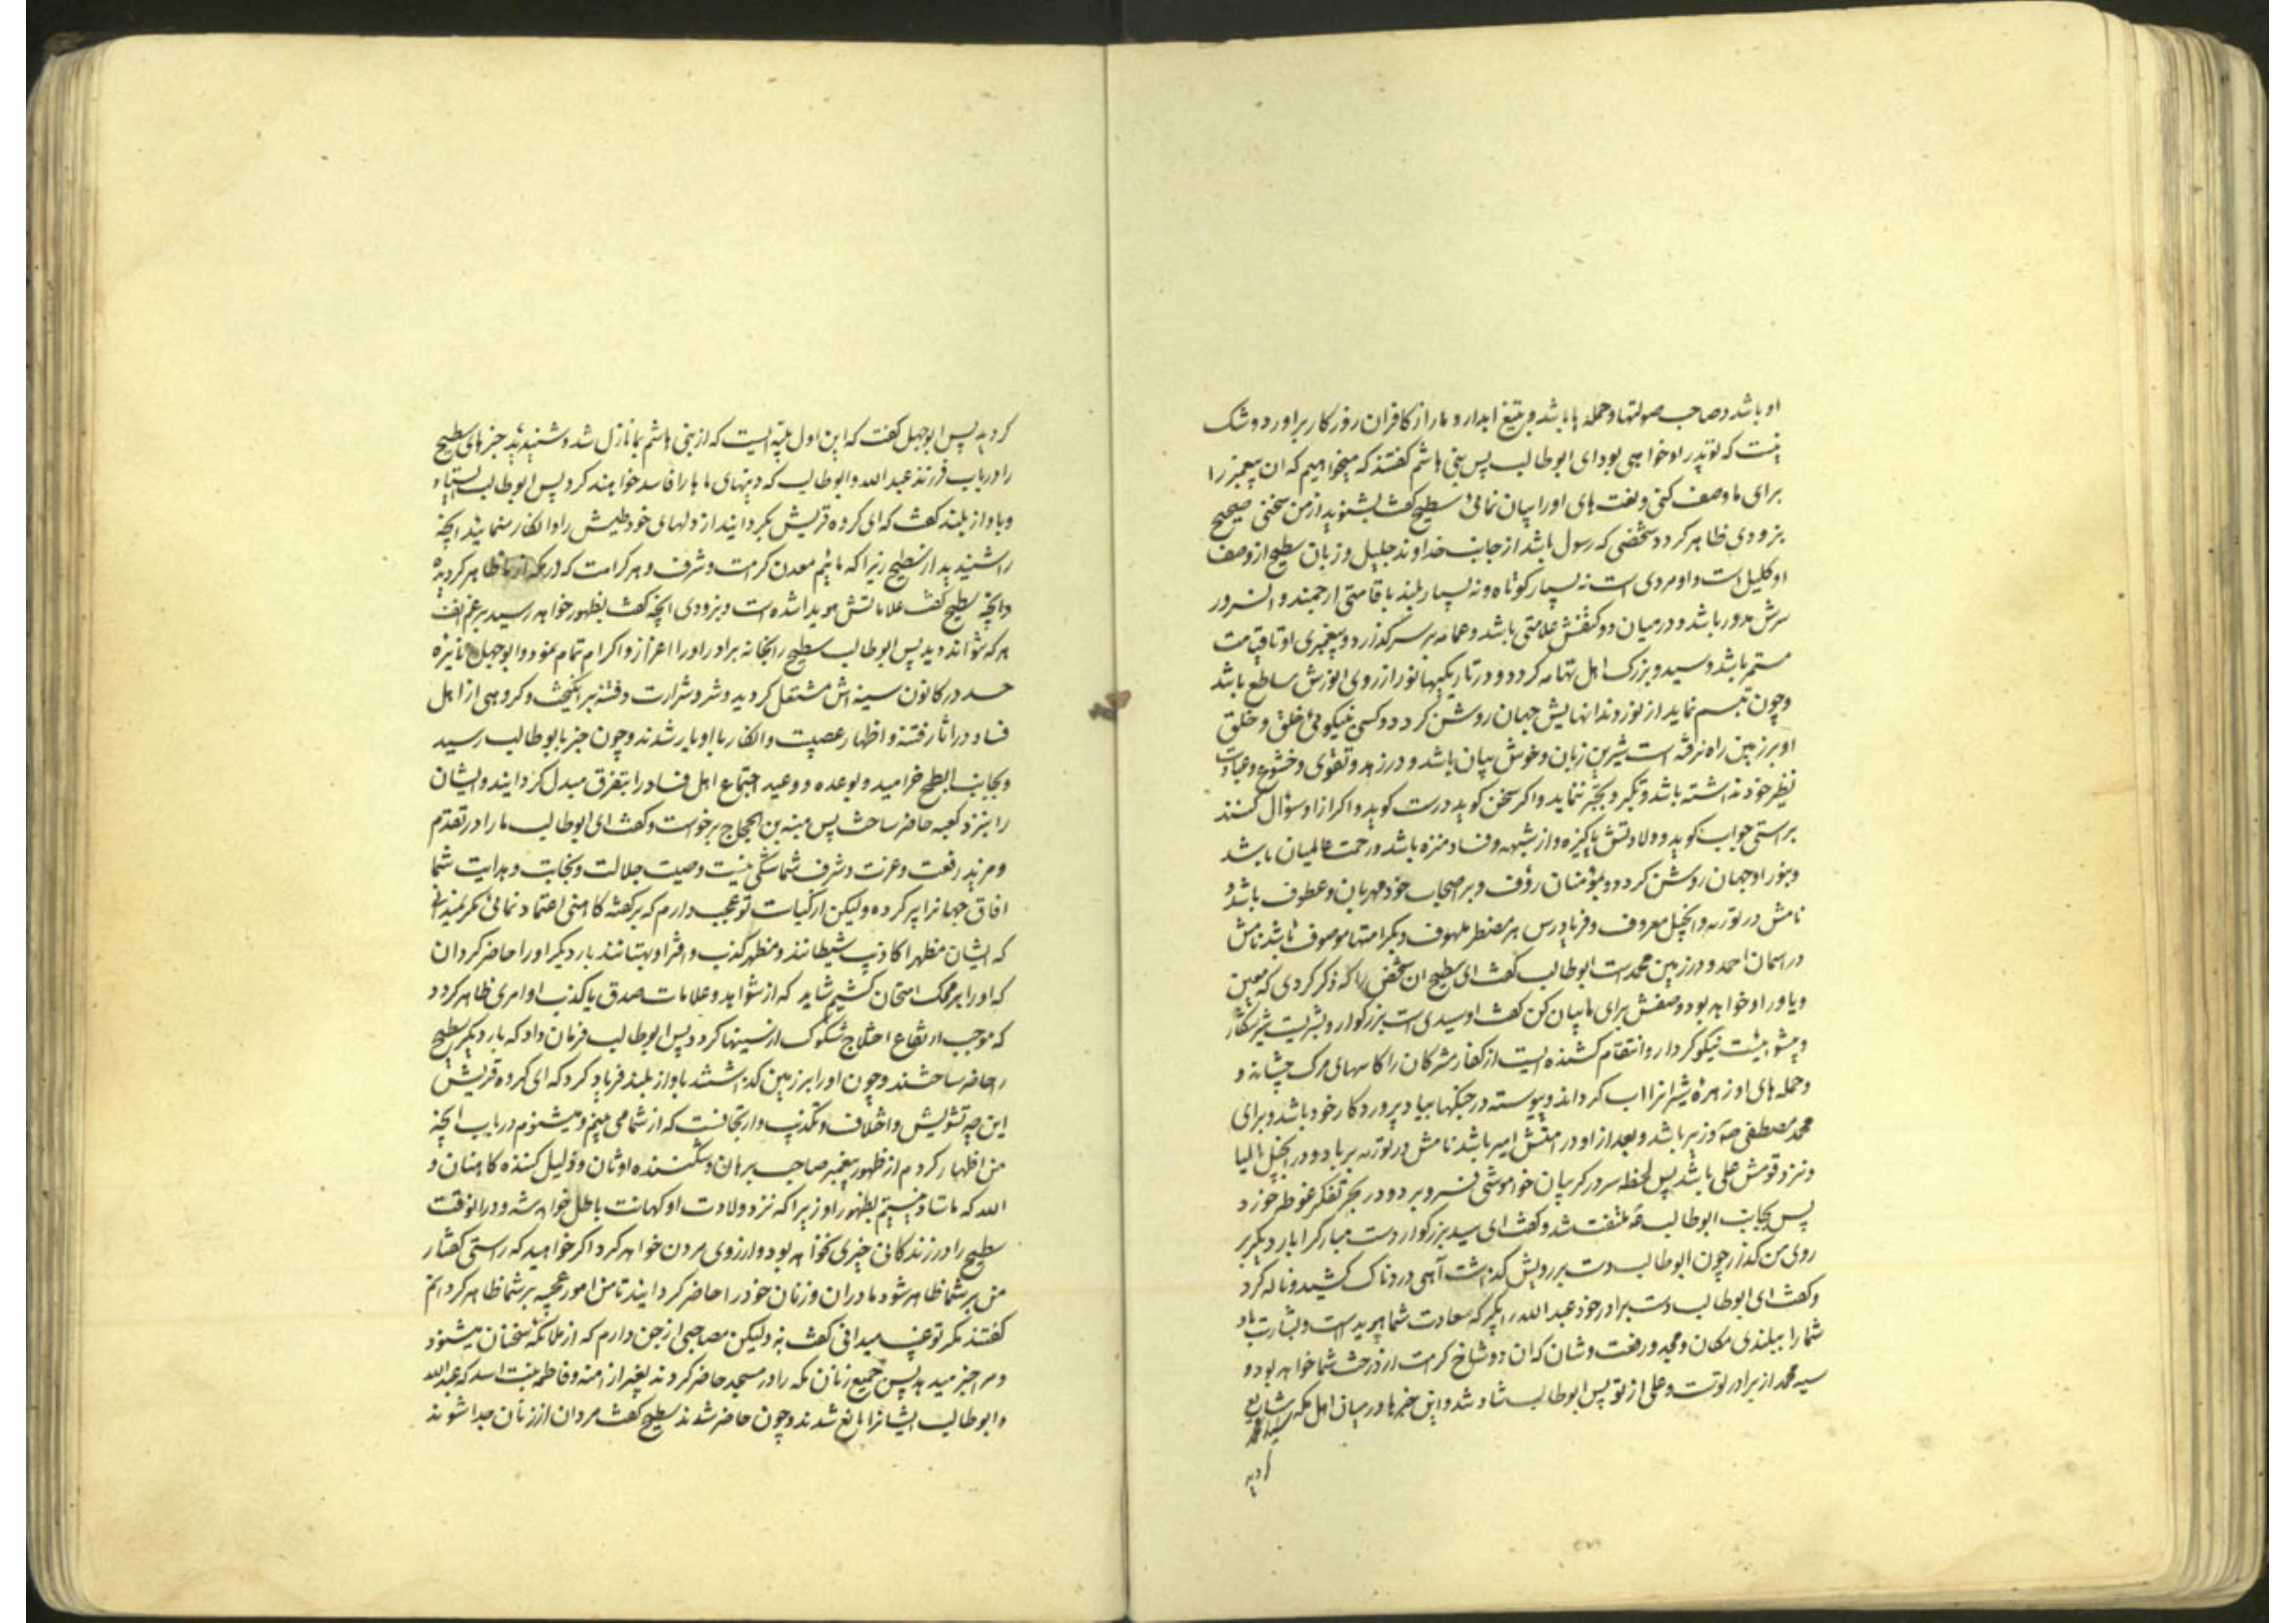 او باشد و صاحب صولتها و حمله ها باشد و بتیغ ابدار دمار از کافران روزکار براورد و شک
نیست که تو پدر او خواهی بود ای ابوطالب پس بنی هاشم کفتند که میخواهیم که ان پیغمبر را
برای ما وصف کنی و نعت های او را بیان نمائی سطیح کفت بشنوید از من سخنی صحیح
بزودی ظاهر کردد شخصی که رسول باشد از جانب خداوند جلیل و زبان سطیح از وصف
او کلیل است و او مردی است نه بسیار کوتاه و نه بسیار بلند با قامتی ارجمند و
سرش مدور باشد و در میان دو کتفش علامتی باشد و عمامه بر سر گذارد و پیغمبری او تا قیامت
مستمر باشد و سید و بزرک اهل تهامه کردد و در تاریکیها نور از روی انورش ساطع باشد
و چون تبسم نماید از نور دندانهایش جهان روشن کردد و کسی به نیکوئی خلق و خلق
او بر زمین راه نرفته است شیرین زبان و خوش بیان باشد و در زهد و تقوی و خشوع و عبادت
نظیر خود نداشته باشد و تکبر و تجبر ننماید و اکر سخن کوید درست کوید و اکر از او سؤال کنند
براستی جواب کوید و ولادتش پاکیزه و از شبهه و فساد منزه باشد و رحمت عالمیان باشد
و بنور او جهان روشن کردد و بمؤمنان رؤف و بر اصحاب خود مهربان و عطوف باشد و
نامش در توریه و انجیل معروف و فریادرس هر مضطر ملهوف و بکرامتها موصوف باشد نامش
در اسمان احمد و در زمین محمد است ابوطالب کفت ای سطیح ان شخص را که ذکر کردی که معین
و یاور او خواهد بود وصفش برای ما بیان کن کفت او سیدی است بزرکوار و شیریست شیر شکار
و پیشوائیست نیکو کردار و انتقام کشنده ایست از کفار مشرکان را کاسهای مرک چشاند و
و حمله های او زهره شیرانرا اب کرداند و پیوسته در جنکها بیاد پروردکار خود باشد و برای
محمد مصطفی ص وزیر باشد و بعد از او در امتش امیر باشد نامش در توریه بریا و در انجیل الیا
و نزد قومش علی باشد پس لحظه سر در کریبان خواموشی فرو برد و در بحر تفکر غوطه خورد
پس بجانب ابوطالب ملتفت شد و کفت ای سید بزرکوار دست مبارکرا بار دیکر بر
روی من کذار چون ابوطالب دست بر رویش کذاشت آهی دردناک کشید و ناله کرد
و کفت ای ابوطالب دست برادر خود عبد الله را بکیر که سعادت شما هویداست و بشارت باد
شما را ببلندی مکان و مجد و رفعت و شان که ان دو شاخ کرامت از درخت شما خواهد بود و
سید محمد از برادر توست و علی از تو پس ابوطالب شاد شد و این خبرها در میان اهل مکه شایع
کردید
کردید پس ابوجهل کفت که این اول بلیه ایست که از بنی هاشم بما نازل شد و شنیدید خبرهای سطیح
را در باب فرزند عبد الله و ابوطالب که دینهای ماها را فاسد خواهند کرد پس ابوطالب بایستاد
و باواز بلند کفت که ای کروه قریش بکردانید از دلهای خود طیش را و انکار منمائید انچه
را شنیدید از سطیح زیرا که مائیم معدن کرامت و شرف و هر کرامت که در مکه از ما ظاهر کردیده
و انچه سطیح کفت علاماتش هویدا شده است و بزودی انچه کفت بظهور خواهد رسید بر رغم انف
هر که نتواند دید پس ابوطالب سطیح را بخانه برد و او را اعزاز و اکرام تمام نمود و ابوجهل نائره
حسد در کانون سینه اش مشتعل کردید و شر و شرارت و فتنه برانکیخت و کروهی از اهل
فساد در اثاره فتنه و اظهار عصبیت و انکار با او یار شدند و چون خبر بابوطالب رسید
و بجانب ابطح خرامید و بوعده و وعید اجتماع اهل فساد را بتفرق مبدل کردانید و ایشان
را بنزد کعبه حاضر ساخت پس منبه بن الحجاج برخواست و کفت ای ابوطالب ما را در تقدم
و مزید رفعت و عزت و شرف شما شکی نیست و صیت جلالت و نجابت و هدایت شما
افاق جهانرا پر کرده ولیکن از کیاست تو عجب دارم که بر کفته کاهنی اعتماد نمائی مکر نمیدانی
که ایشان مظهر اکاذیب شیطانند و مظهر کذب و افترا و بهتانند بار دیکر او را حاضر کردان
که او را بر محک امتحان کشیم شاید که از شواهد و علامات صدق یا کذب او امری ظاهر کردد
که موجب ارتفاع اختلاج شکوک از سینها کردد پس ابوطالب فرمان داد که بار دیکر سطیح
را حاضر ساختند و چون او را بر زمین کذاشتند باواز بلند فریاد کرد که ای کروه قریش
این چه تشویش و اختلاف و تکذیب و ارتجافست که از شما می بینم و میشنوم در باب انچه
من اظهار کردم از ظهور پیغمبر صاحب برهان و شکننده اوثان و ذلیل کننده کاهنان و
الله که ما شاد نیستیم بظهور او زیرا که نزد ولادت او کهانت باطل خواهد شد و در انوقت
سطیح را در زندکانی خیری نخواهد بود و ارزوی مردن خواهد کرد اکر خواهید که راستی کفتار
من بر شما ظاهر شود مادران و زنان خود را حاضر کردانید تا من امور عجیبه بر شما ظاهر کردانم
کفتند مکر تو غیب میدانی کفت نه ولیکن مصاحبی از جن دارم که از ملائکه سخنان میشنود
و مرا خبر میدهد پس جمیع زنان مکه را در مسجد حاضر کردند بغیر از امنه و فاطمه بنت اسد که عبدالله
و ابوطالب ایشانرا مانع شدند و چون حاضر شدند سطیح کفت مردان از زنان جدا شوند